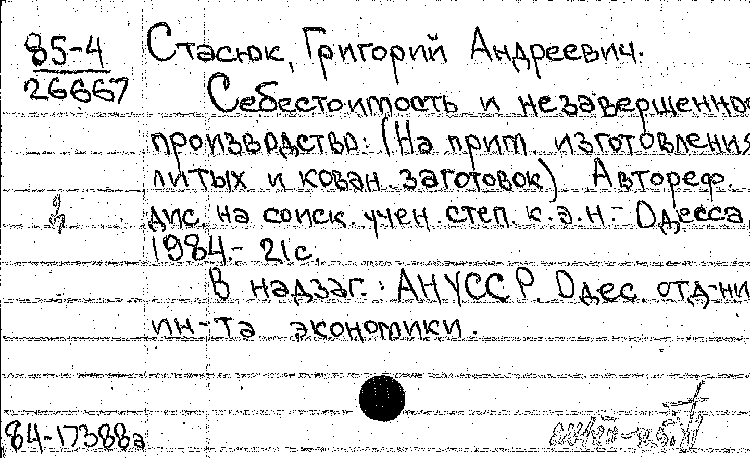 85-4
26667
Стасюк, Григорий Андреевич.
Себестоимость и незавершенно
производство: (На прим. изготовления
литых и кован. заготовок) Автореф.
дис. на соиск. учен. степ. к.э.н. - Одесса,
1984. - 21 с.
В надзаг.: АН УССР. Одес. отд-ни
ин-та экономики.
84-17388а